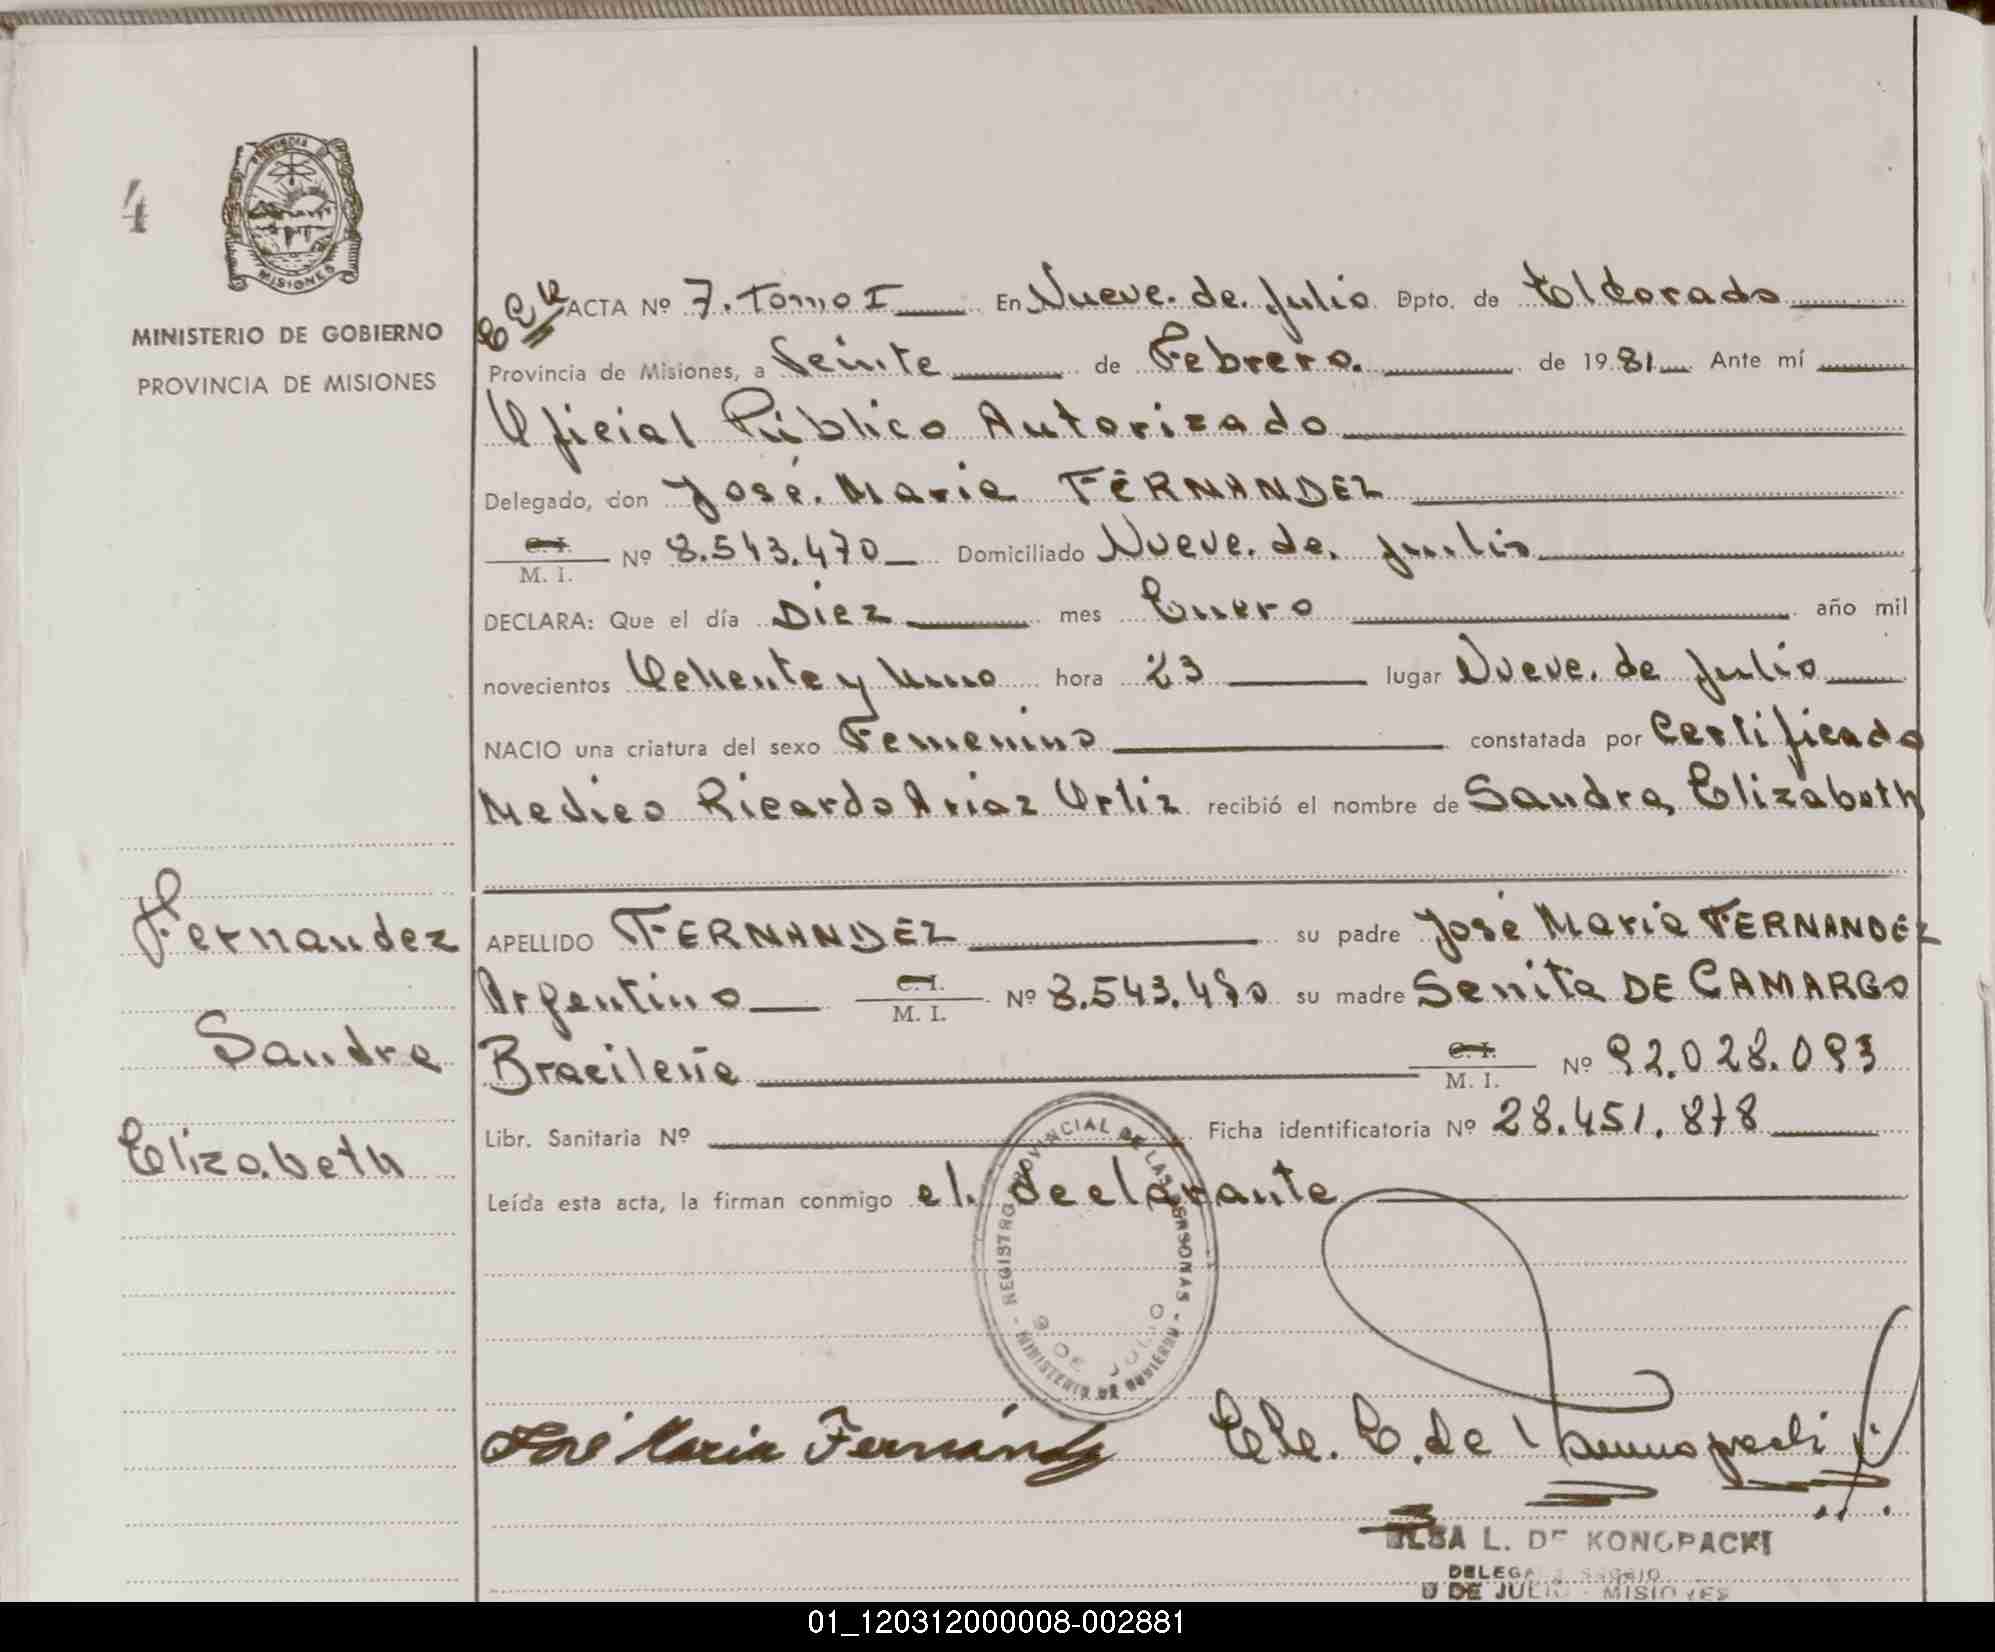 4
PROVINCIA
MISIONES
MINISTERIO DE GOBIERNO
PROVINCIA DE MISIONES
ACTA Nº 7. Tomo I En Nueve. de. Julio Dpto. de Eldorado
Provincia de Misiones, a Veinte de Febrero. de 1981 Ante mí
Oficial Público Autorizado
Delegado, don José. María FERNANDEZ
C. I.
M. I. Nº 8.543.470 Domiciliado Nueve. de. Julio
DECLARA: Que el día Diez mes Enero año mil
novecientos Ochenta y Uno hora 23 lugar Nueve. de Julio
NACIO una criatura del sexo Femenino constatada por Certificado
Medico Ricardo Ariaz Ortiz recibió el nombre de Sandra Elizabeth
Fernandez
APELLIDO FERNANDEZ su padre José María FERNANDEZ
Argentino C. I. M. I. Nº 8.543.470 su madre Senita DE CAMARGO
Sandra
Brasileña C. I. M. I. Nº 92.028.093
Elizabeth
Libr. Sanitaria Nº Ficha identificatoria Nº 28.451.878
Leída esta acta, la firman conmigo el. declarante
REGISTRO PROVINCIAL DE LAS PERSONAS - MINISTERIO DE GOBIERNO -
9 DE JULIO
José María Fernández
ELSA L. DE KONOPACKI
9 DE JULIO - MISIONES
01_120312000008-002881